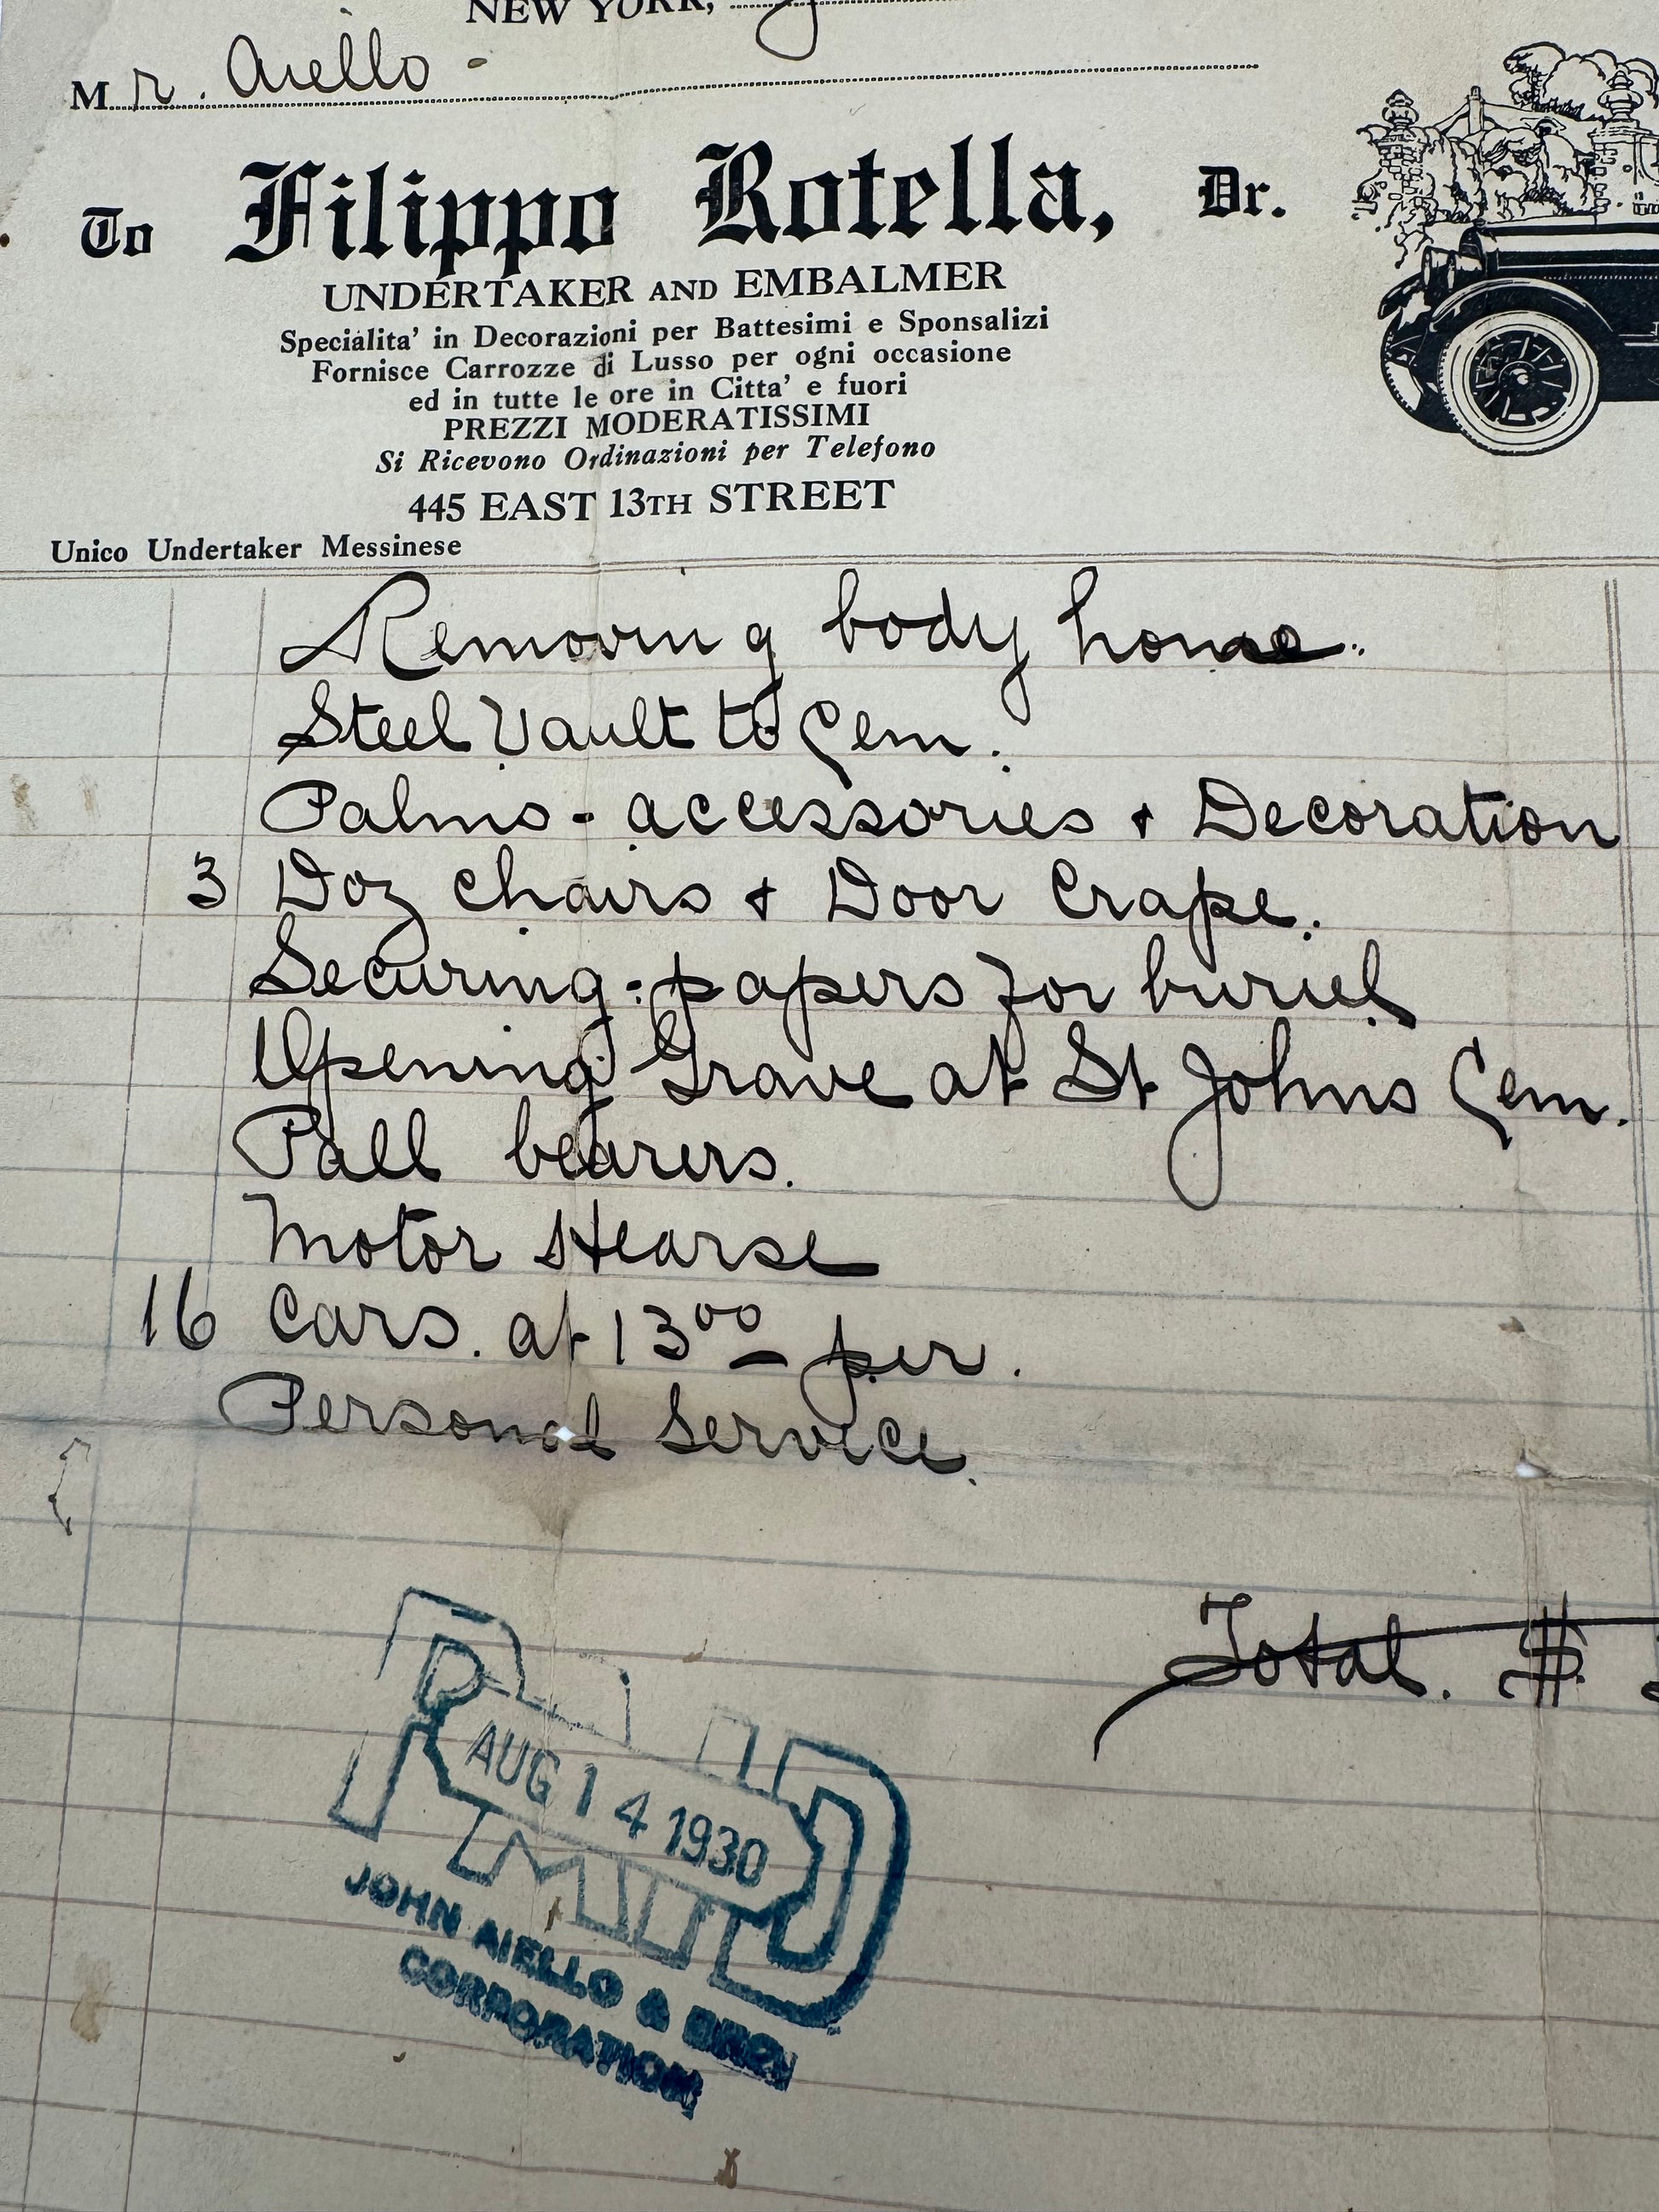 NEW YORK,
Mr. Aiello -
To Filippo Rotella, Dr.
UNDERTAKER AND EMBALMER
Specialita' in Decorazioni per Battesimi e Sponsalizi
Fornisce Carrozze di Lusso per ogni occasione
ed in tutte le ore in Citta' e fuori
PREZZI MODERATISSIMI
Si Ricevono Ordinazioni per Telefono
445 EAST 13TH STREET
Unico Undertaker Messinese
Removing body home..
Steel Vault to Cem.
Palms - accessories & Decoration
3 Doz chairs & Door Crape.
Securing - papers for buriel
Opening Grave at St Johns Cem.
Pall bearers.
Motor Hearse
16 Cars. at 13⁰⁰ per.
Personal Service.
Total. $
PAID
AUG 14 1930
JOHN AIELLO & BRO
CORPORATION